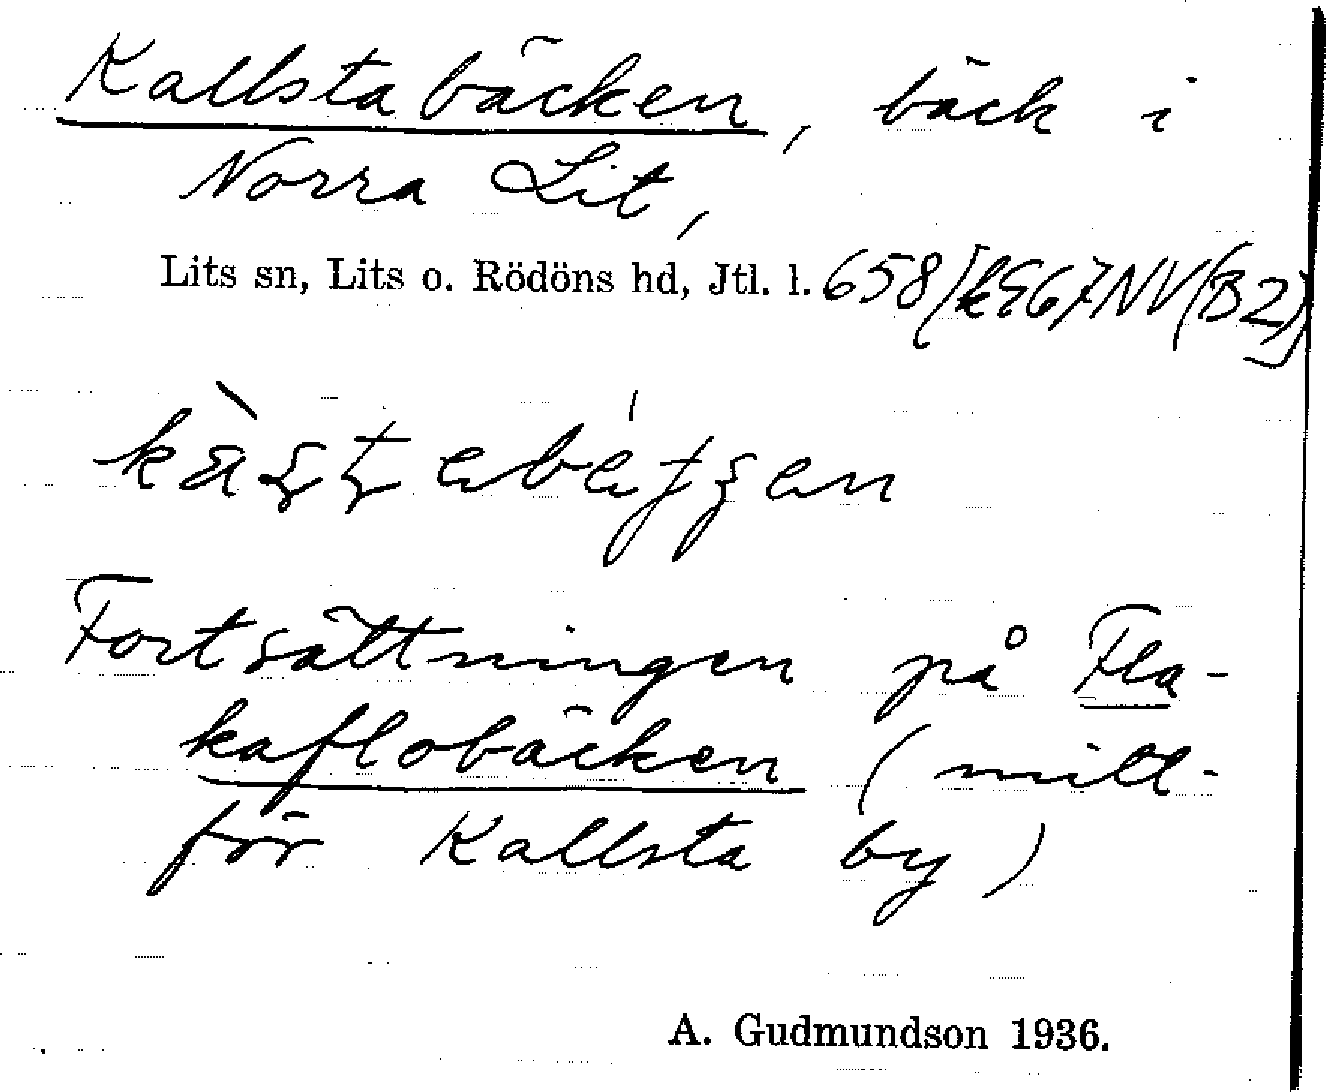 Kallstabäcken, bäck i
Norra Lit,
Lits sn, Lits o. Rödöns hd, Jtl. l. 658
Fortsättningen på Fla-
kaflobäcken (mitt-
för Kallsta by)
A. Gudmundson 1936.